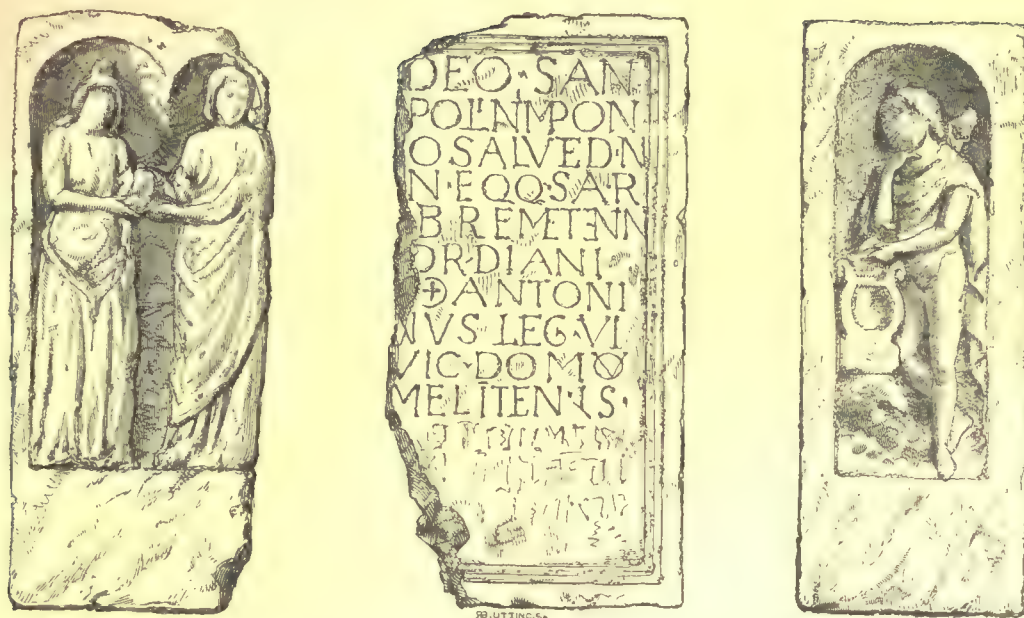 DEO·SAN
POLINIMPON
O SALVED·N
N·EQQ·SAR
BREMETENN
OR·DIANI
ANTONI
NVS·LEG·VI
VIC·DOMO
MELITENIS·
R.B.UTTING.Sc.